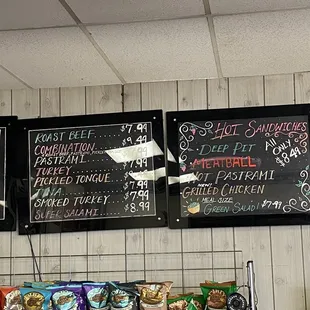 ROAST BEEF $7.49
COMBINATION $7.99
PASTRAMI $7.99
TURKEY
PICKLED TONGUE $7.99
TUNA $7.49
SMOKED TURKEY $7.99
SUPER SALAMI $8.99
HOT SANDWICHES
DEEP PIT
MEATBALL
HOT PASTRAMI
GRILLED CHICKEN
ALL ONLY
$8.49
MEAL SIZE
GREEN SALAD $7.49